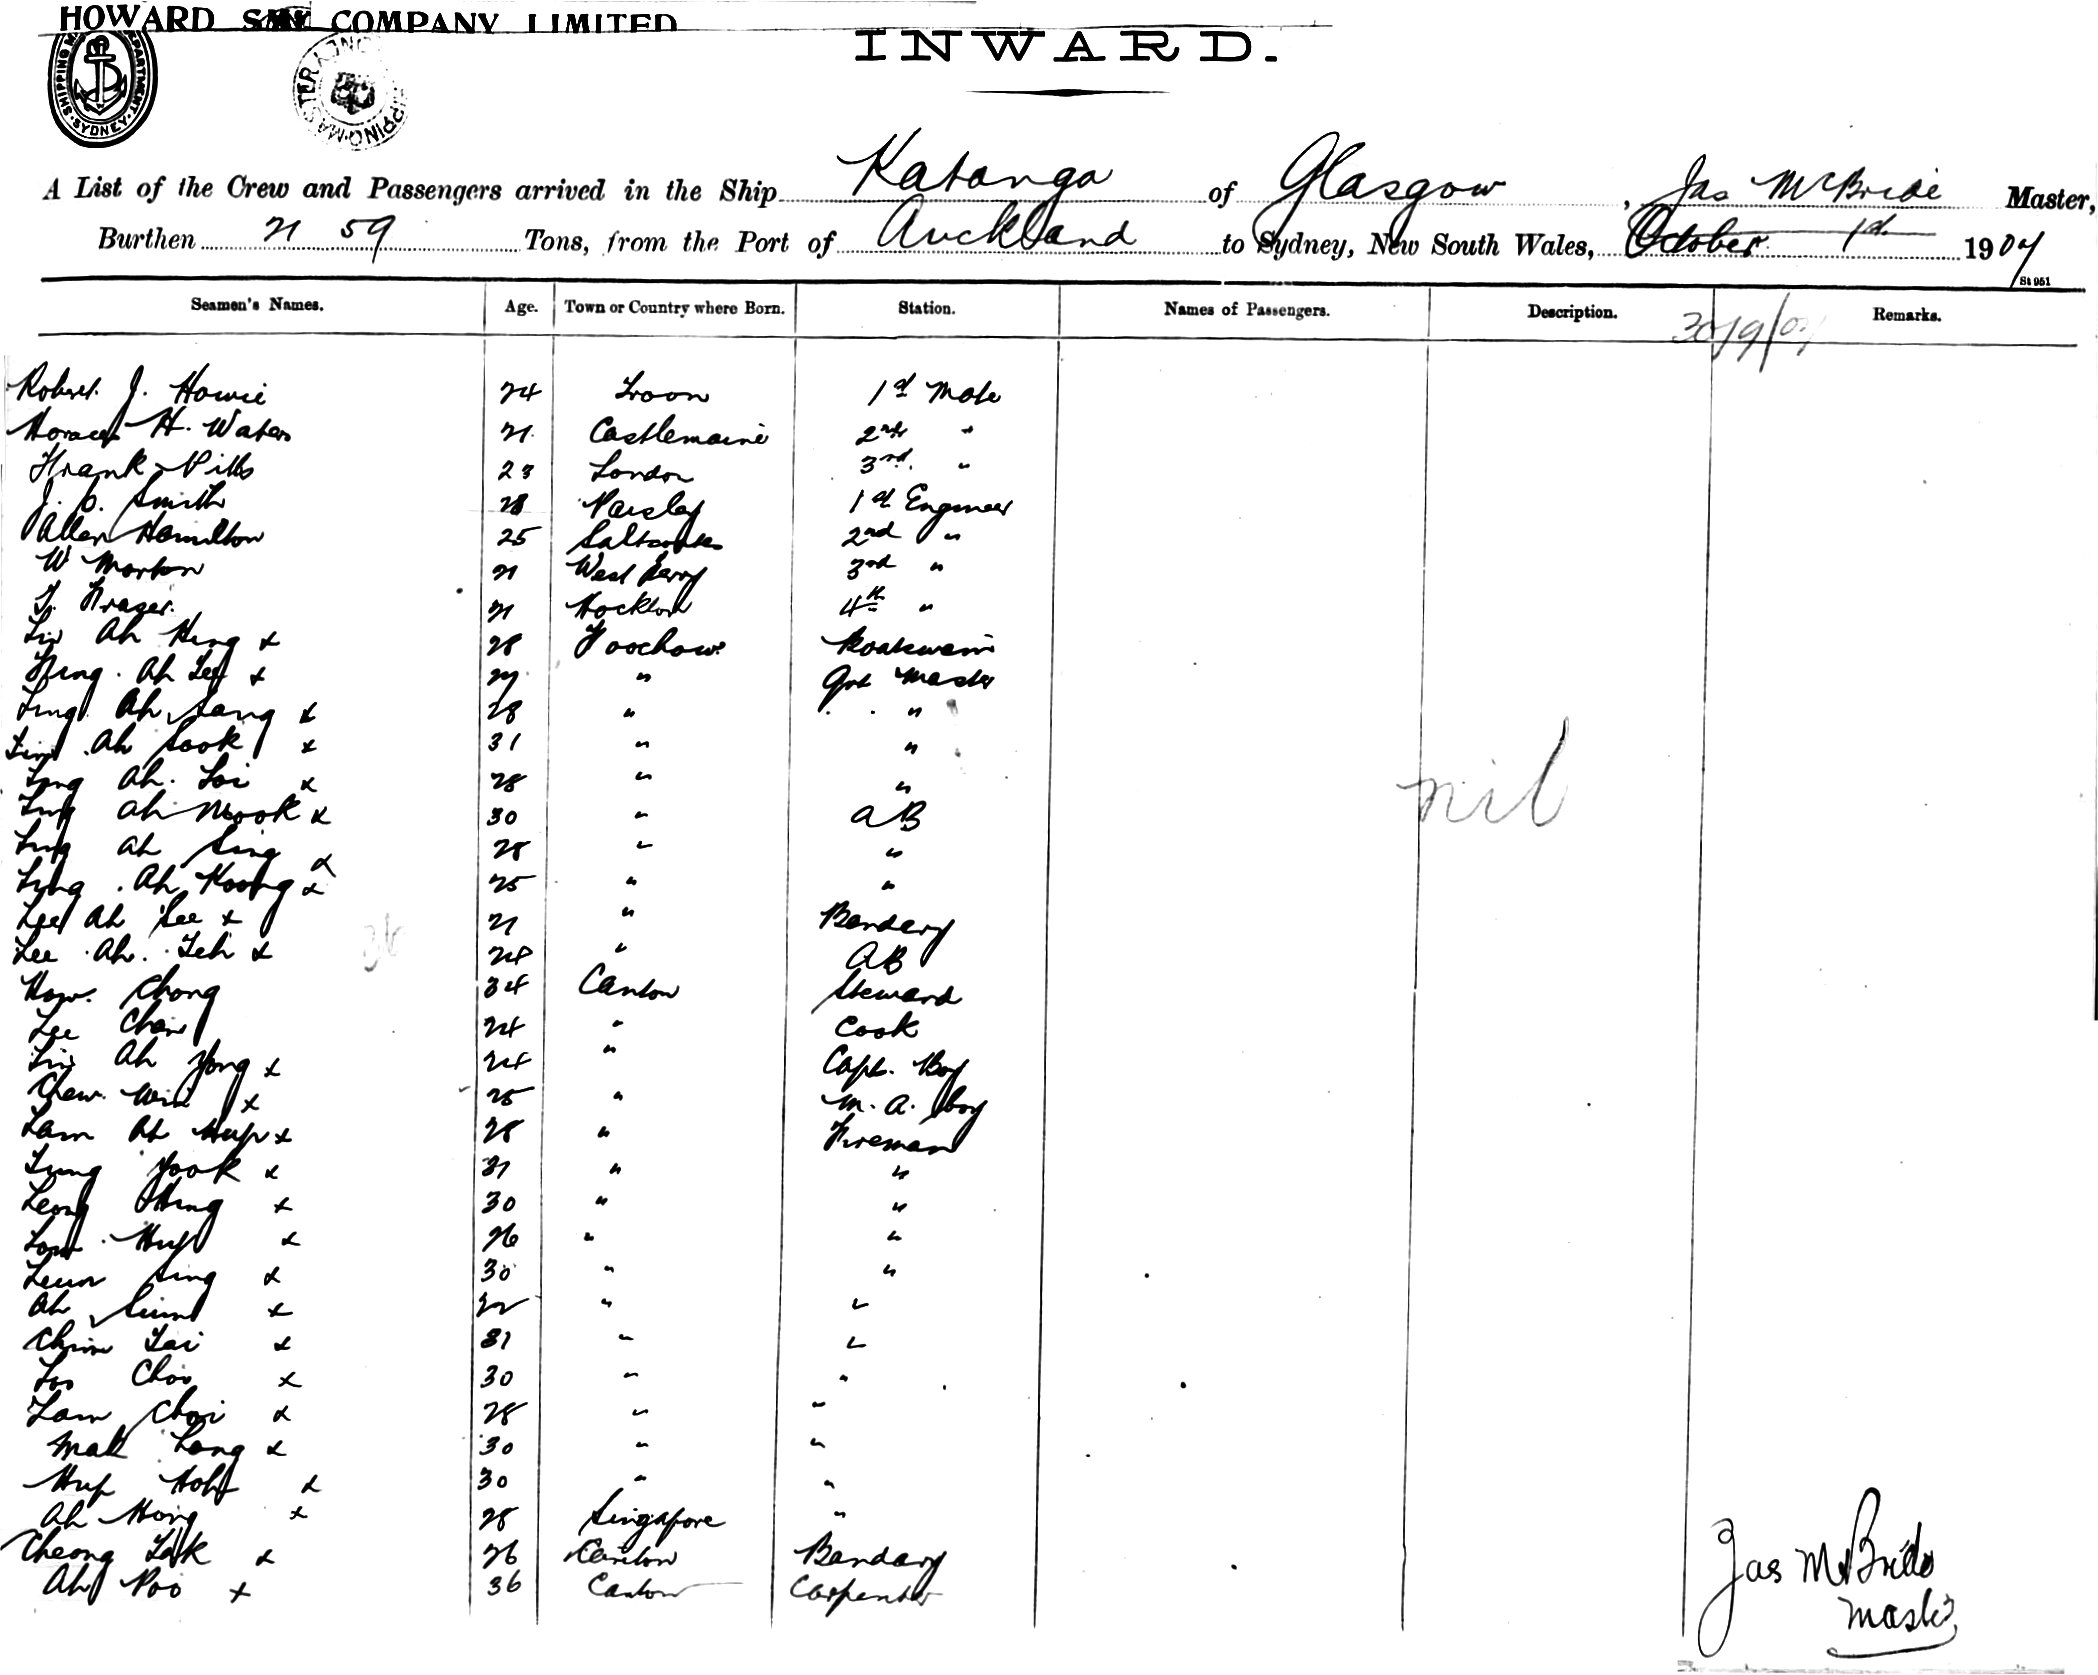 HOWARD SMITH COMPANY LIMITED
INWARD.
SHIPPING MASTER DEPARTMENT SYDNEY
A List of the Crew and Passengers arrived in the Ship Katanga of Glasgow, Jas McBride Master,
Burthen 2159 Tons, from the Port of Auckland to Sydney, New South Wales, October 1st 1904
St 951
Seamen's Names. Age. Town or Country where Born. Station. Names of Passengers. Description. Remarks.
30/9/04
Robert J. Howie 24 Troon 1st Mate
Horace H. Waters 21 Castlemaine 2nd "
Frank Pitts 23 London 3rd "
J. Smith 28 Paisley 1st Engineer
Allan Hamilton 25 Saltcoats 2nd "
W Morton 21 West Ferry 3rd "
T. Fraser 21 4th "
Ah Hing x 28 Foochow Boatswain
Ah Lee x 27 " Qrt Master
Ling Ah Sang x 28 " "
Ah Sook x 31 " "
Ling Ah Loi x 28 " "
Ling Ah Mook x 30 " AB
Ling Ah Sing x 28 " "
Ling Ah Koong x 25 " "
Lee Ah See x 21 " Bandary
Lee Ah Teh x 24 " AB
How Chong 34 Canton Steward
Lee Chan 24 " Cook
Ah Yong x 24 " Capt. Boy
Chew x 25 " M. A. boy
Lam Ah Hup x 28 " Fireman
Tung Yook x 31 " "
Leong Hing x 30 " "
Hup x 26 " "
Leun Sing x 30 " "
Ah x 22 " "
Tai x 31 " "
Choi x 30 " "
Lam Choi x 28 " "
Mak Long x 30 " "
Hup x 30 " "
Ah Hong x 28 Singapore "
Cheong Tak x 26 Canton Bandary
Ah Poo x 36 Canton Carpenter
nil
Jas McBride
Master